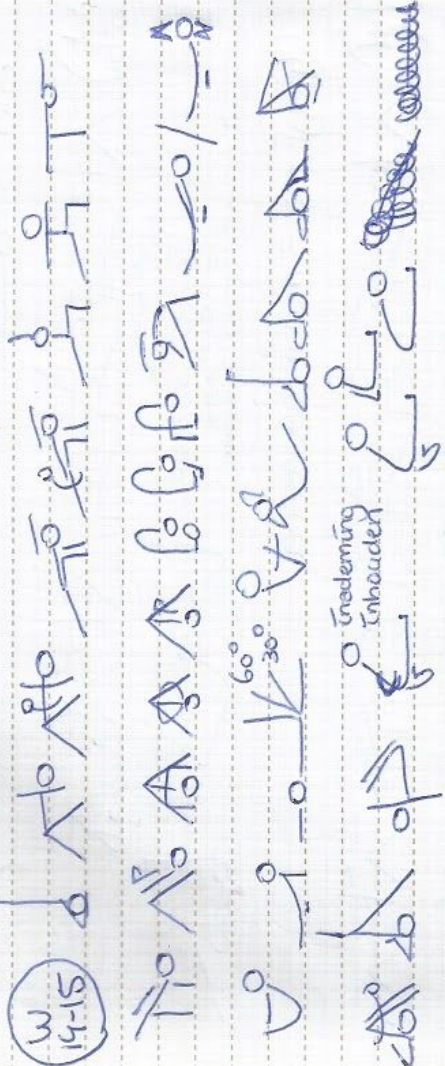 W
14-15
60°
30°
inademing
inhouden